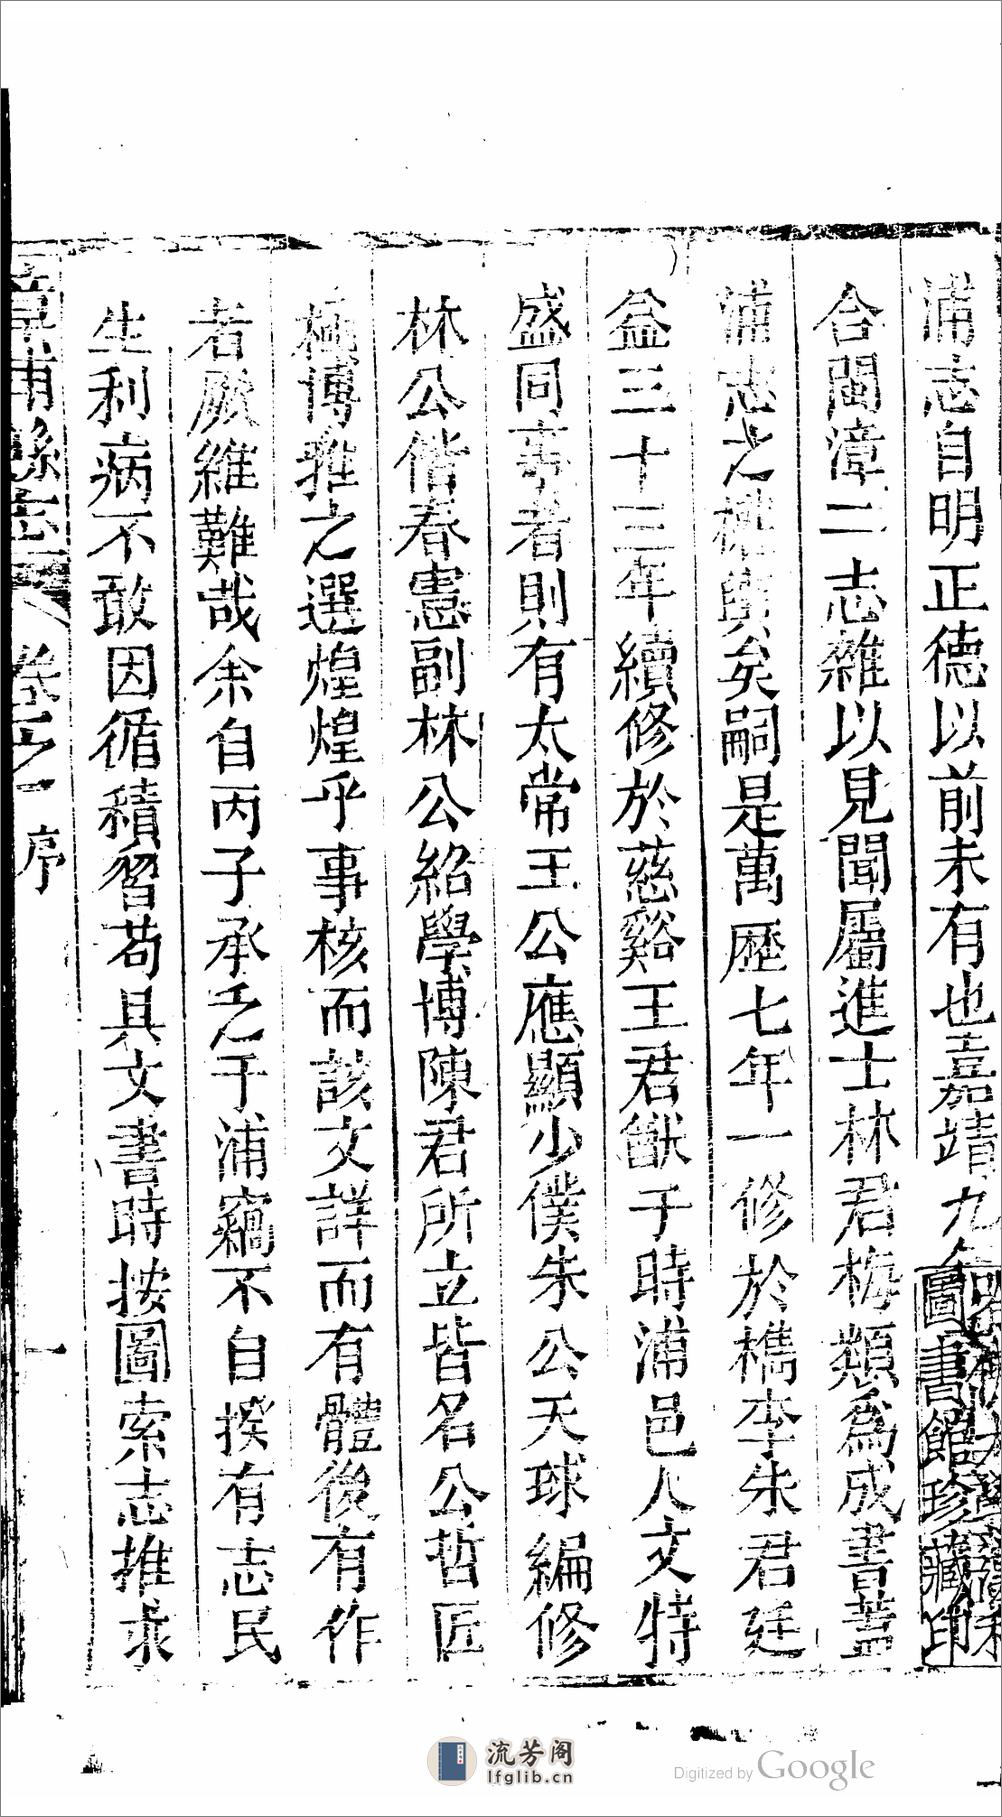 浦志自明正德以前未有也嘉靖九年
合閩漳二志雜以見聞屬進士林君梅類為成書蓋
浦志之權輿矣嗣是萬歷七年一修於檇李朱君廷
益三十三年續修於慈谿王君猷于時浦邑人文特
盛同事者則有太常王公應顯少僕朱公天球編修
林公偕春憲副林公紹學博陳君所立皆名公哲匠
極博雅之選煌煌乎事核而該文詳而有體後有作
者厥維難哉余自丙子承乏于浦竊不自揆有志民
生利病不敢因循積習苟具文書時按圖索志推求
漳浦縣志 卷之一 序 一
圖書館珍藏印
流芳阁
lfglib.cn
Digitized by Google